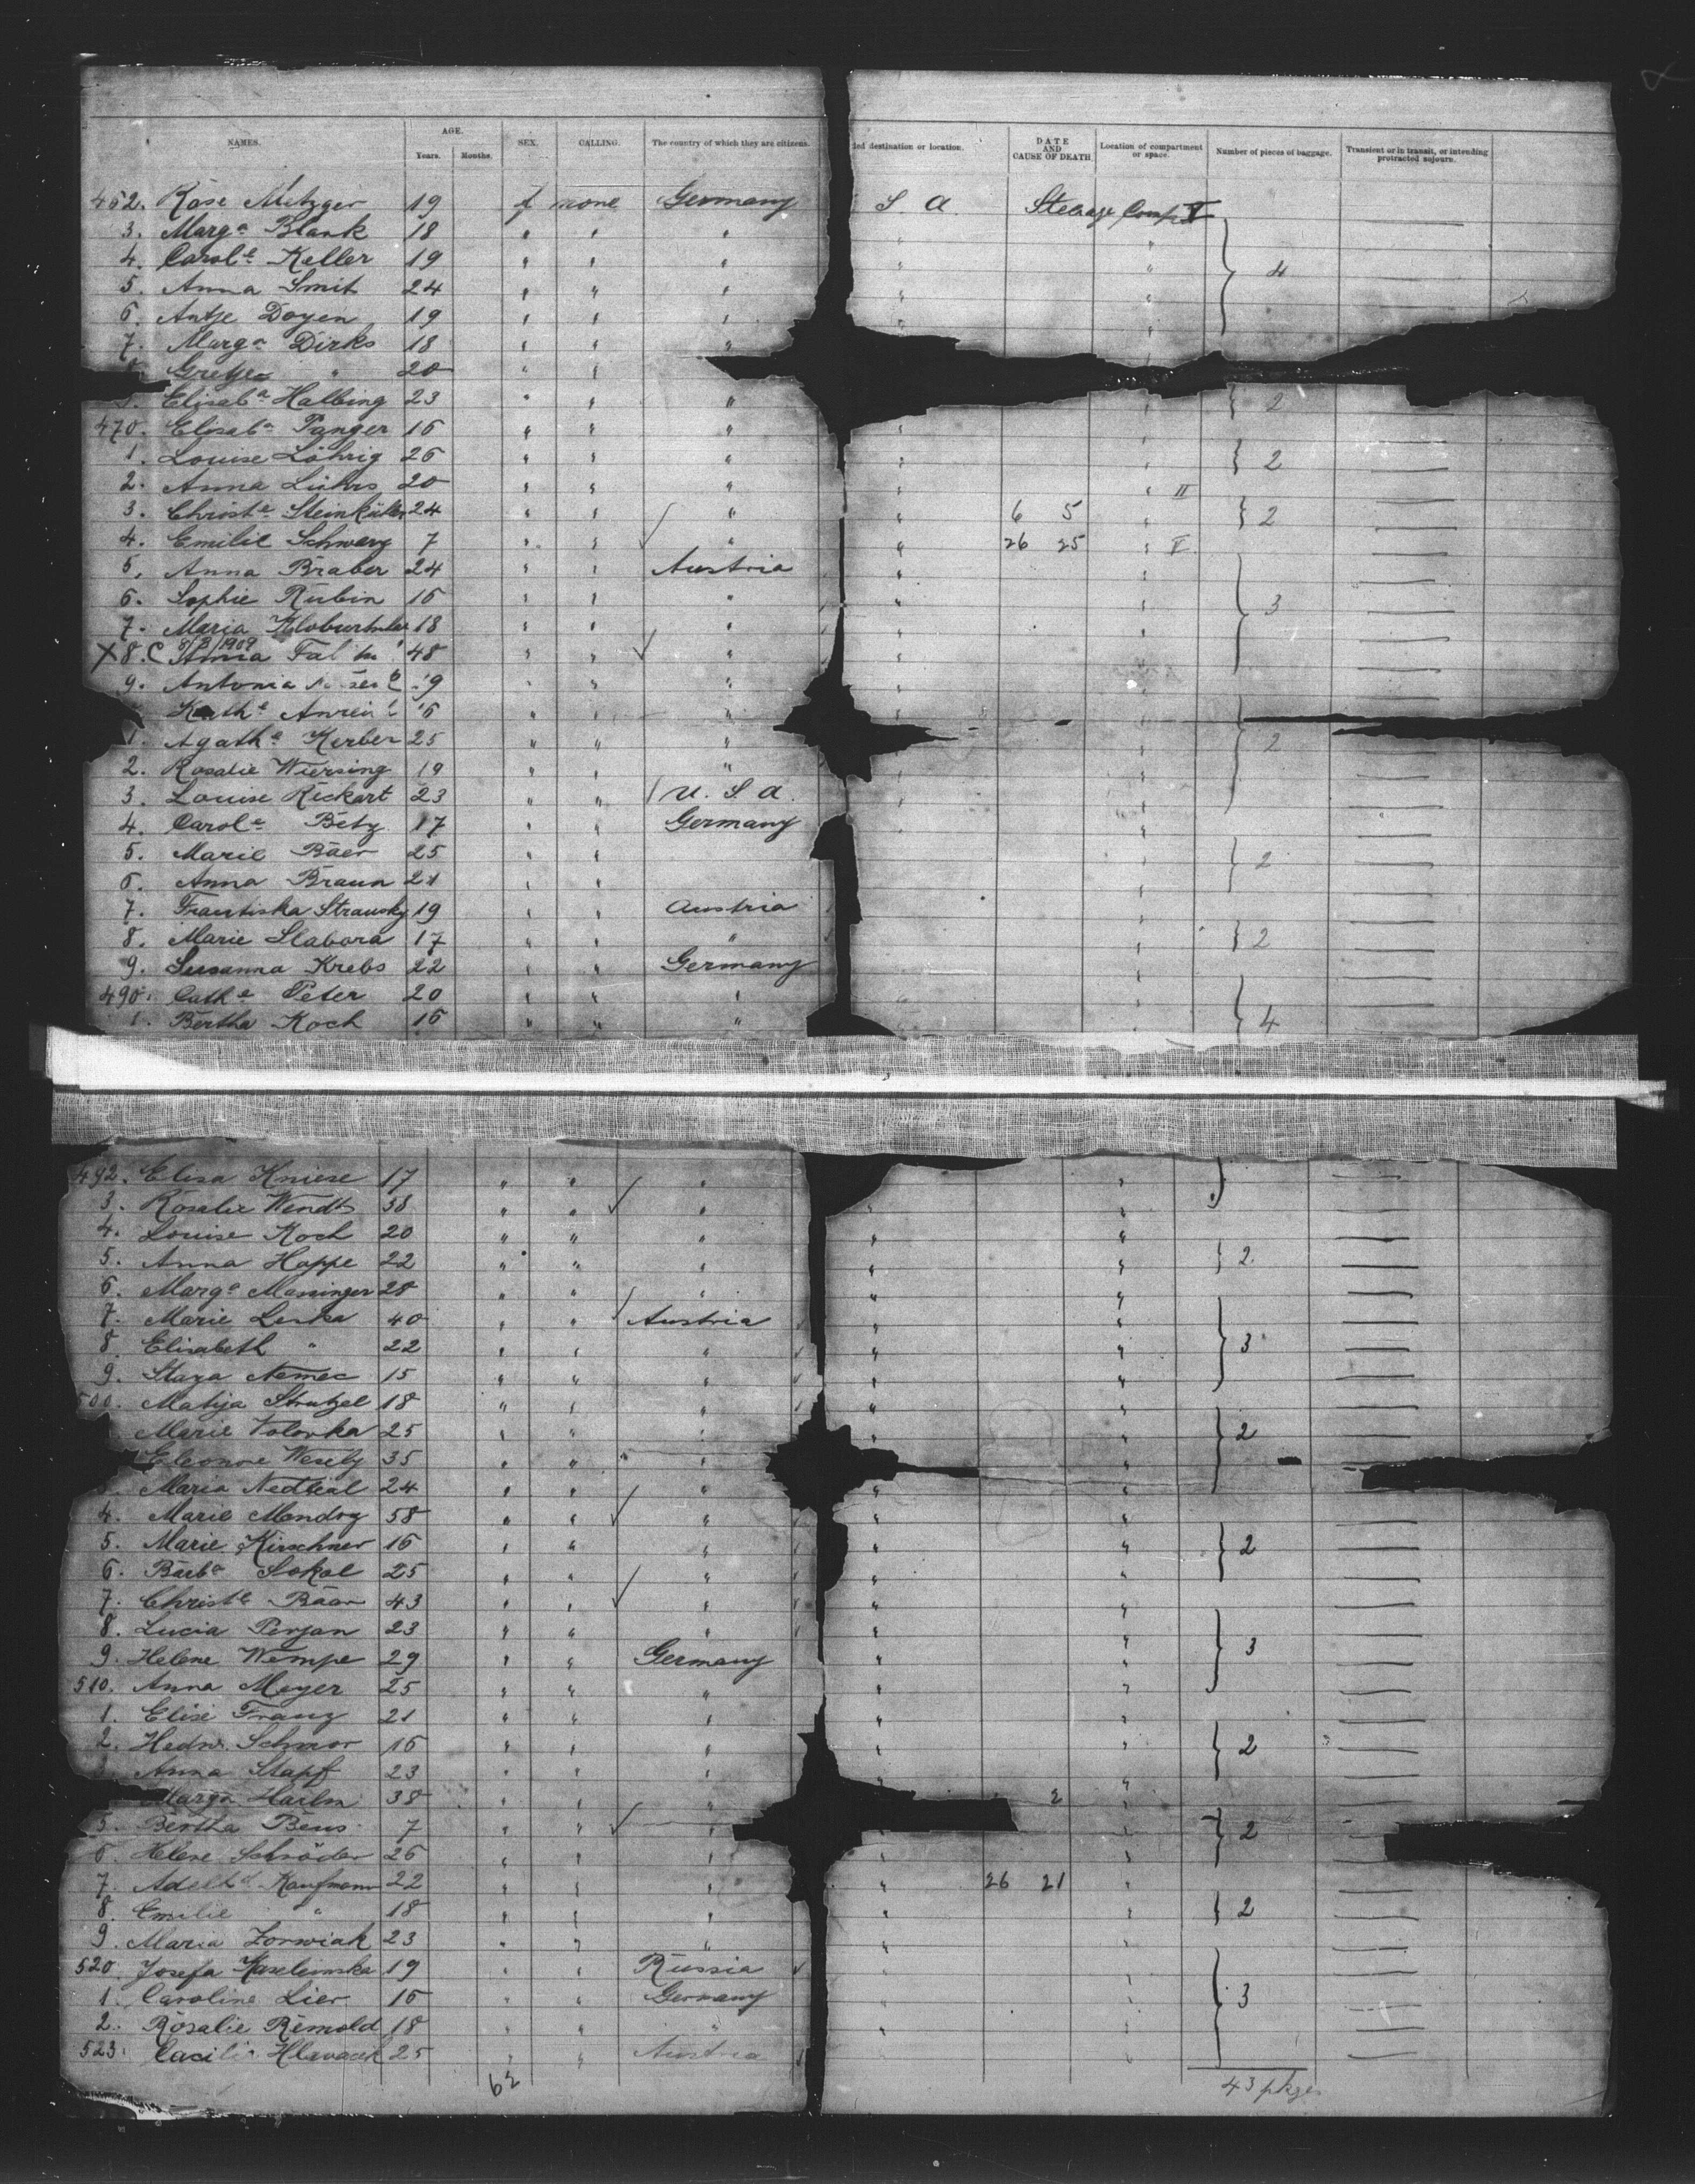 NAMES. AGE. Years. Months. SEX. CALLING. The country of which they are citizens. ded destination or location. DATE AND CAUSE OF DEATH Location of compartment or space. Number of pieces of baggage. Transient or in transit, or intending protracted sojourn.
462. Rosa Metzger 19 f none Germany S. A. Steerage Comp. V
3. Marga Blank 18 " " "
4. Carole Keller 19 " " " 4
5. Anna Smit 24 " " "
6. Antje Doyen 19 " " "
7. Marga Dirks 18 " " "
Gretje " 20 " "
Elisaba Halbing 23 " " " 2
470. Elisaba Panger 16 " " "
1. Louise Löhrig 26 " " " 2
2. Anna Lührs 20 " " " " II
3. Christe 24 " " " 6 5 2
4. Emilie Schwarz 7 " " " 26 25 " V
5. Anna Braber 24 " " Austria
6. Sophie Rubin 16 " " " 3
7. Maria 18 " " "
X 8. C 1909 Anna 48 " " "
9. Antonia 19 " " "
Kathe 16 " " "
1. Agathe Kerber 25 " " " 2
2. Rosalie Wiersing 19 " " "
3. Louise Rickart 23 " " U. S. A.
4. Carole Betz 17 " " Germany
5. Marie Bäer 25 " " 2
6. Anna Braun 21 " "
7. Frantiska Stransky 19 " " Austria
8. Marie Slabora 17 " " " 2
9. Susanna Krebs 22 " " Germany
490. Cathe Peter 20 " " "
1. Bertha Koch 16 " " " 4
492. Elisa Kniese 17 " " "
3. Rosalie Wendt 38 " " "
4. Louise Koch 20 " " "
5. Anna Hoppe 22 " " " 2
6. Marga Maninger 28 " " "
7. Marie Leska 40 " " Austria
8. Elisabeth " 22 " " " 3
9. Staza Nemec 15 " " "
500. Matija Strutzel 18 " " "
Marie Volovka 25 " " " 2
Eleonore Wesely 35 " " "
3. Maria Nedbal 24 " " "
4. Marie Mondry 58 " " "
5. Marie Kirschner 16 " " " 2
6. Barba Sokol 25 " " "
7. Christe Bäar 43 " " "
8. Lucia Perjan 23 " " "
9. Helene Wempe 29 " " Germany 3
510. Anna Meyer 25 " " "
1. Elise Franz 21 " " "
2. Hedw. Schmor 16 " " " 2
3. Anna Stapf 23 " " "
Marga Hailm 38 " " " 2
5. Bertha Beus 7 " " " 2
6. Helene Schröder 26 " " "
7. Adelhd Kaufmann 22 " " " 26 21
8. Emilie " 18 " " " 2
9. Maria Zorwiak 23 " " "
520. Josefa 19 " " Russia
1. Caroline Lier 16 " " Germany 3
2. Rosalie Remold 18 " " "
523. Cacilia Hlavacek 25 " " Austria
62 43 pkges